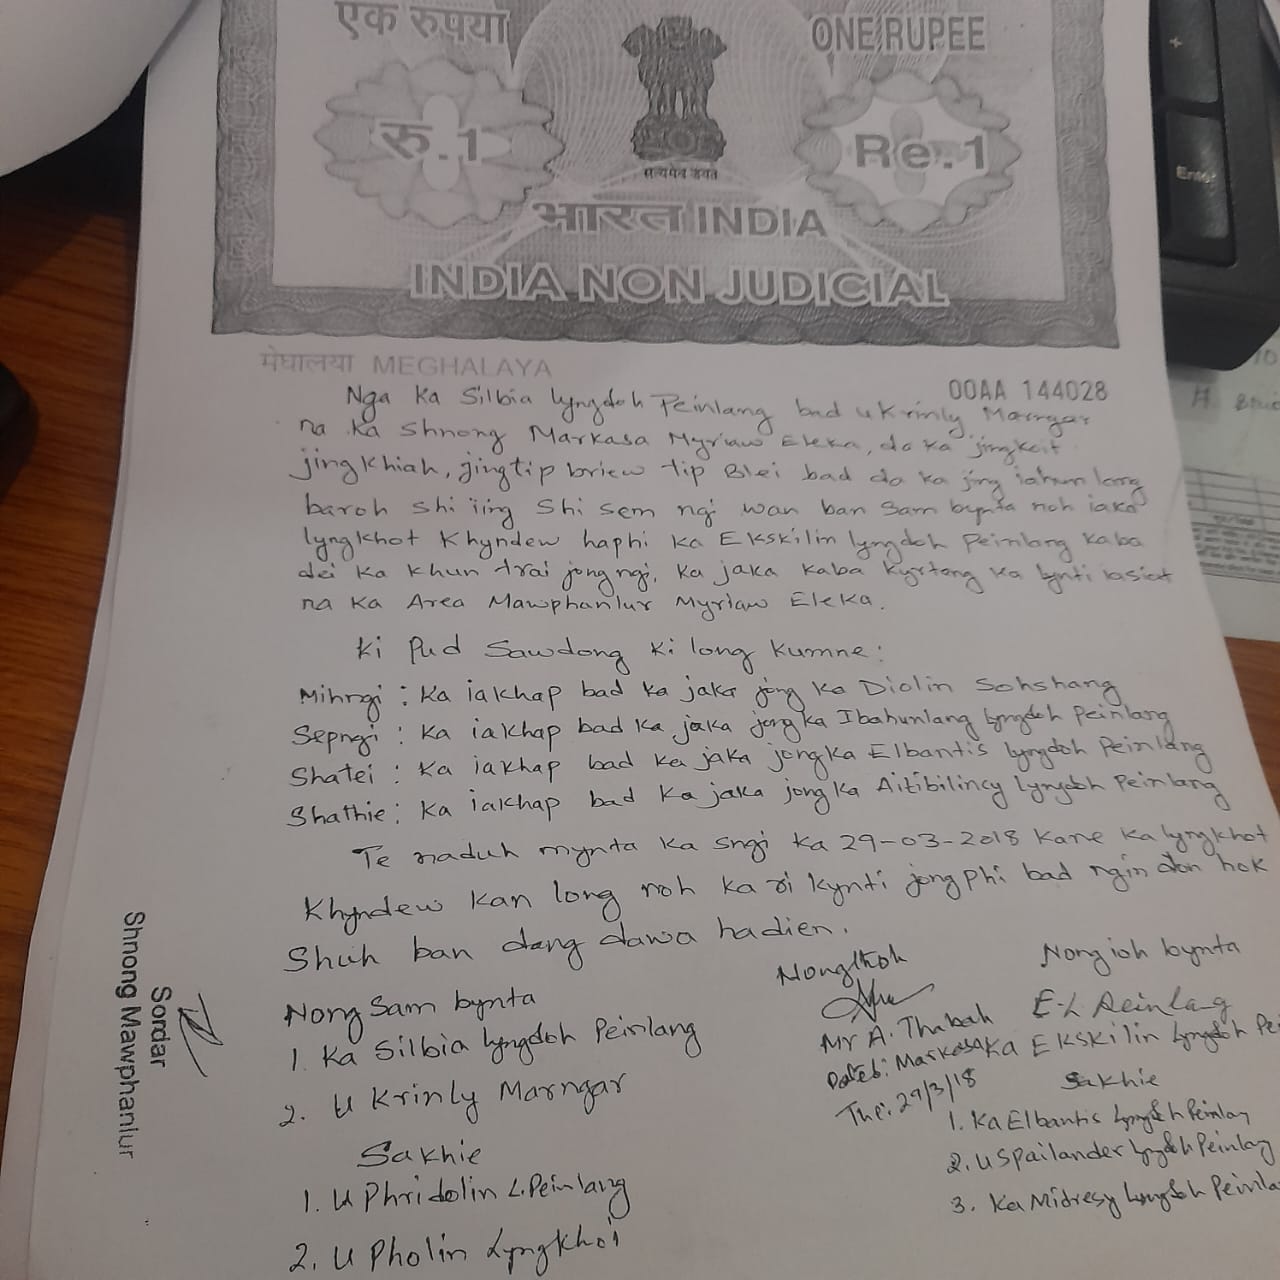 एक रुपया ONE RUPEE
रु.1 Re.1
सत्यमेव जयते
भारत INDIA
INDIA NON JUDICIAL
मेघालया MEGHALAYA
00AA 144028
Nga Ka Silbia Lyngdoh Peinlang bad u Krinly Marngar
na ka shnong Markasa Myriaw Eleka, da ka jingkoit
jingkhiah, jingtip briew tip Blei bad da ka jing iahun lang
baroh shi iing shi sem ngi wan ban sam bynta noh iaka
lyngkhot Khyndew haphi ka Ekskilin Lyngdoh Peinlang kaba
dei ka khun trai jongngi. Ka jaka kaba kyrteng ka lynti iasiat
na ka Area Mawphanlur Myriaw Eleka.
Ki Pud Sawdong ki long kumne:
Mihngi : Ka iakhap bad ka jaka jong ka Diolin Sohshang
Sepngi : Ka iakhap bad ka jaka jong ka Ibahunlang Lyngdoh Peinlang
Shatei : Ka iakhap bad ka jaka jong ka Elbantis Lyngdoh Peinlang
Shathie : Ka iakhap bad ka jaka jong ka Aitibilincy Lyngdoh Peinlang
Te naduh mynta ka sngi ka 29-03-2018 kane ka lyngkhot
Khyndew kan long noh ka ri kynti jong phi bad ngin don hok
Shuh ban dang dawa hadien.
Nong Sam bynta
1. Ka Silbia Lyngdoh Peinlang
2. U Krinly Marngar
Sakhie
1. U Phridolin L. Peinlang
2. U Pholin Lyngkhoi
Nongthoh
Mr A. Thabah
Markasa
The: 29/3/18
Nongioh bynta
E.L Peinlang
Ka Ekskilin Lyngdoh Pei
Sakhie
1. Ka Elbantis Lyngdoh Peinlang
2. U Spailander Lyngdoh Peinlang
3. Ka Midresy Lyngdoh Peinla
Sordar
Shnong Mawphanlur
Enter